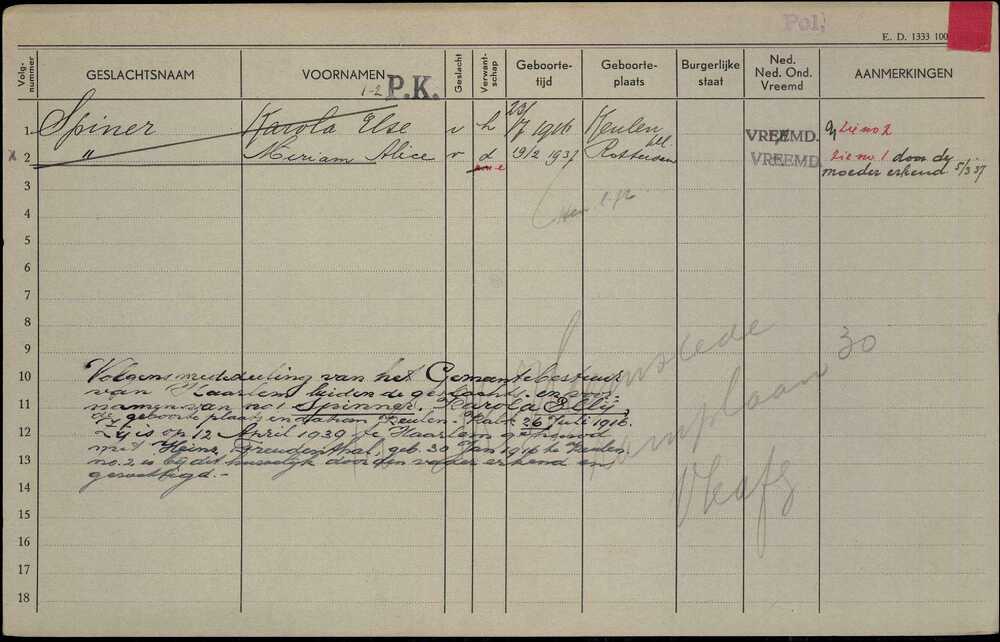 Pol.
E. D. 1333 100
Volg-nummer GESLACHTSNAAM VOORNAMEN 1-2 P.K. Geslacht Verwant-schap Geboorte-tijd Geboorte-plaats Burgerlijke staat Ned. Ned. Ond. Vreemd AANMERKINGEN
1 Spiner Karola Else v h 23/7 1916 Keulen VREEMD. zie no 2
x 2 " Miriam Alice v d 19/2 1937 Rotterdam VREEMD zie no. 1 door de
moeder erkend 5/3 37
3
4
5
6
7
8
9
Heemstede
30
10 Volgens mededeeling van het Gemeentebestuur
van Haarlem luiden de geslachts- en voor-
11 namen van no 1 Spinner, Karola Elly,
de geboorteplaats en datum Keulen-Kalk 26 Juli 1916.
12 Zij is op 12 April 1939 te Haarlem gehuwd
met Heinz Freudenthal, geb. 30 Jan 1916 te Keulen.
13 no. 2 is bij dit huwelijk door den vader erkend en
gewettigd.-
14
15
16
17
18